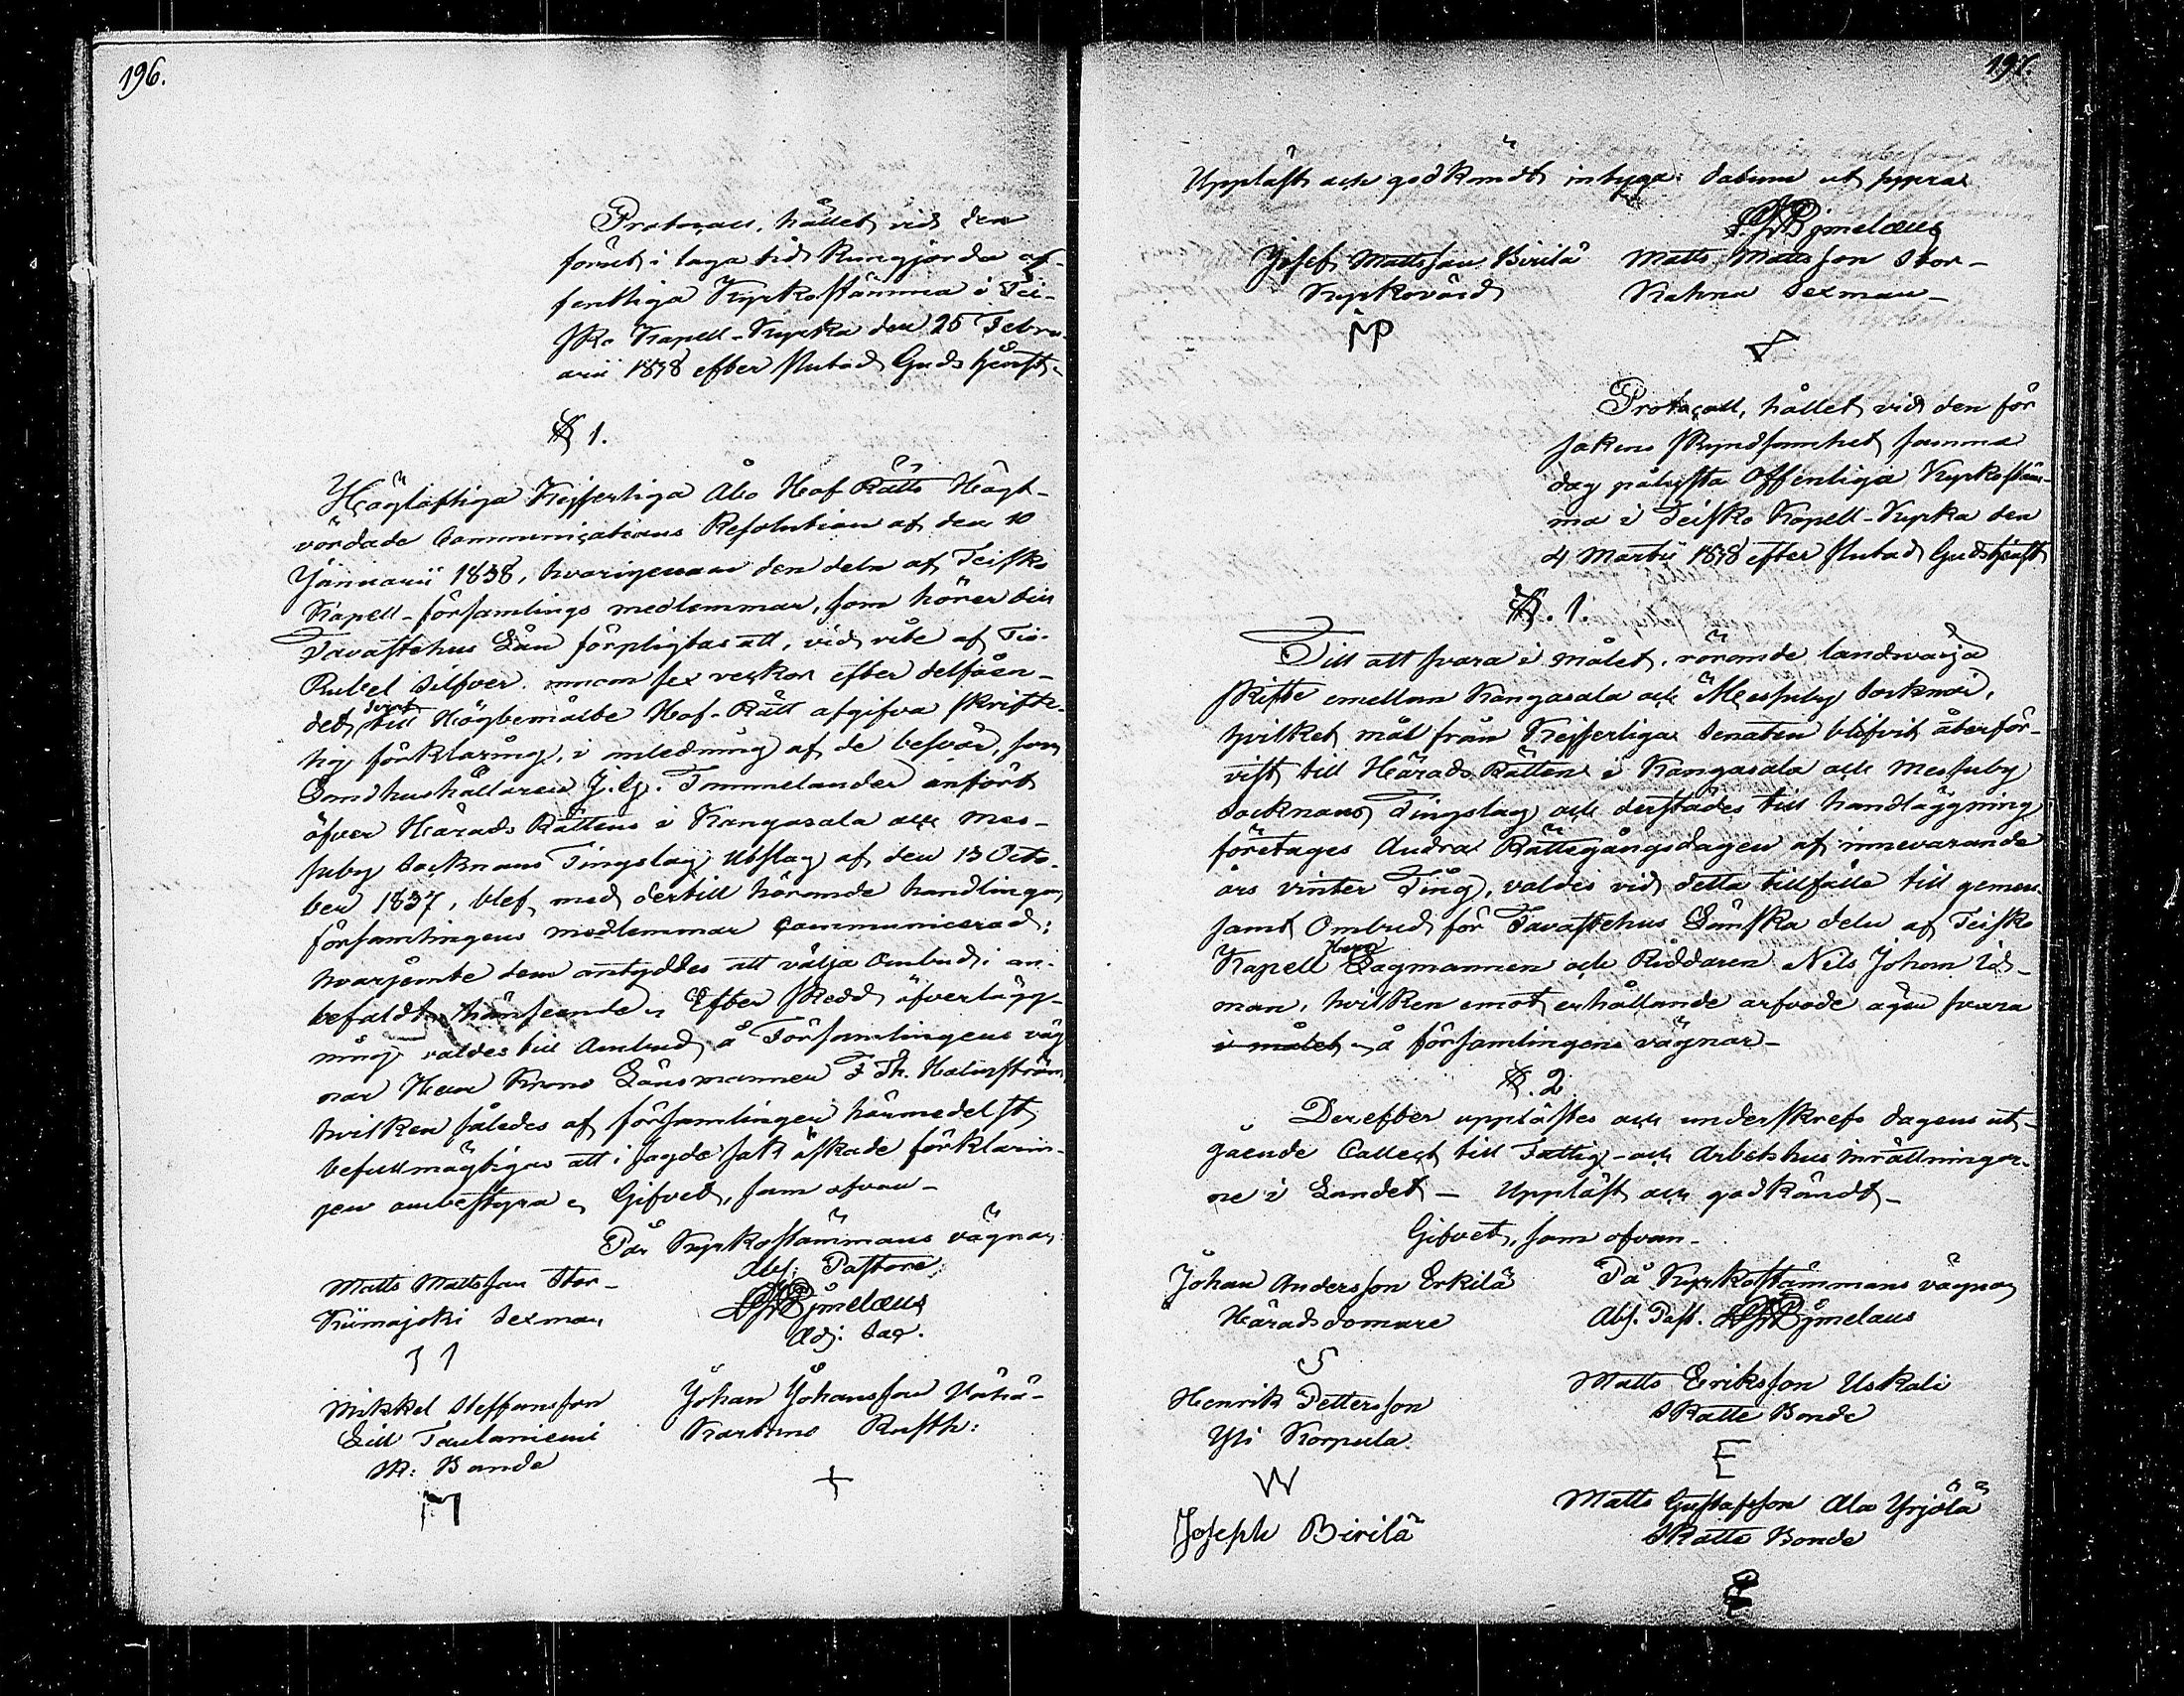 196.
Protocoll, hållet vid den
förut i laga tid kungjorda of-
fentliga Kyrkostämma i Tei-
sko Kapell-Kyrka den 25 Febru-
arii 1838 efter slutad Gudstjenst.
§ 1.
Höglofliga Kejserliga Åbo Hof Rätts Högt-
vördade Communications Resolution af den 10
Januarii 1838, hvarigenom den deln af Teisko
Kapell-församlings medlemmar, som hörer till
Tavastehus Län förpligtas att, vid vite af Tio
Rubel Silfver innom sex veckor efter delfåen-
det, till Högbemälte Hof-Rätt afgifva skrift-
lig förklaring, i anledning af de besvär, som
Landhushållaren J. G. Tammelander anfört
öfver Härads Rättens i Kangasala och Mes-
suby Socknars Tingslag Utslag af den 13 Octo-
ber 1837, blef, med dertill hörande handlingar,
församlingens medlemmar communicerad;
hvarjemte dem antyddes att välja Ombud i an-
befaldt hänseende. Efter skedd öfverlägg-
ning valdes till Ombud å Församlingens väg
nar Herr Krono Länsmannen F. Th. Holmström
hvilken således af församlingen härmedelst
befullmägtigas att i sagde sak äskade förklarin-
gen ombestyra. Gifvet, som ofvan-
På Kyrkostämmans vägnar
Abs: Pastore
Bjmelæus
Adj: Sac.
Matts Mattsson Stor-
Kiimajoki Sexman
Mikkel Steffansson
Lill Taulaniemi
Sk: Bonde
M
Johan Johansson Vähä-
Karttuno Rusth:
+
197.
Uppläst och godkändt intyga. Datum ut supra
Bjmelæus
Josef Mattsson Birilä
Kyrkovärd
Matts Mattsson Stor-
Kahna Sexman-
Protocoll, hållet vid den för
sakens skyndsamhet samma
dag pålysta Offentliga Kyrkostäm-
ma i Teisko Kapell-Kyrka den
4 Martii 1838 efter slutad Gudstjenst
§. 1.
Till att svara i målet, rörande landsväga
skifte emellan Kangasala och Messuby Socknar,
hvilket mål från Kejserliga Senaten blifvit återför-
vist till Härads Rätten i Kangasala och Messuby
Socknars Tingslag och derstädes till handläggning
företages Andra Rättegångsdagen af innevarande
års vinter Ting, valdes vid detta tillfälle till gemen-
samt Ombud för Tavastehus Länska deln af Teisko
Kapell Herr Lagmannen och Riddaren Nils Johan Id-
man, hvilken emot erhållande arfvode äger svara
i målet å församlingens vägnar-
§. 2
Derefter upplästes och underskrefs dagens ut-
gående Collect till Fattig- och Arbetshus inrättningar-
ne i Landet — Uppläst och godkändt-
Gifvet, som ofvan-
På Kyrkostämmans vägnar
Abs. Past. Bjmelæus
Johan Andersson Erkilä
Häradsdomare
S
Matts Eriksson Uskali
Skatte Bonde
E
Henrik Pettersson
Yli Korpula
W
Matts Gustafsson Ala Yrjölä
Skatte Bonde
Joseph Birilä